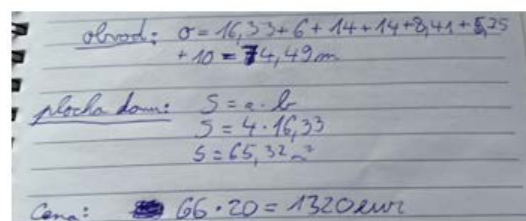 obvod: σ = 16,33 + 6 + 14 + 14 + 8,41 + 5,25
+ 10 = 74,49 m
plocha domu: S = a · b
S = 4 · 16,33
S = 65,32 m²
Cena: 66 · 20 = 1320 eur